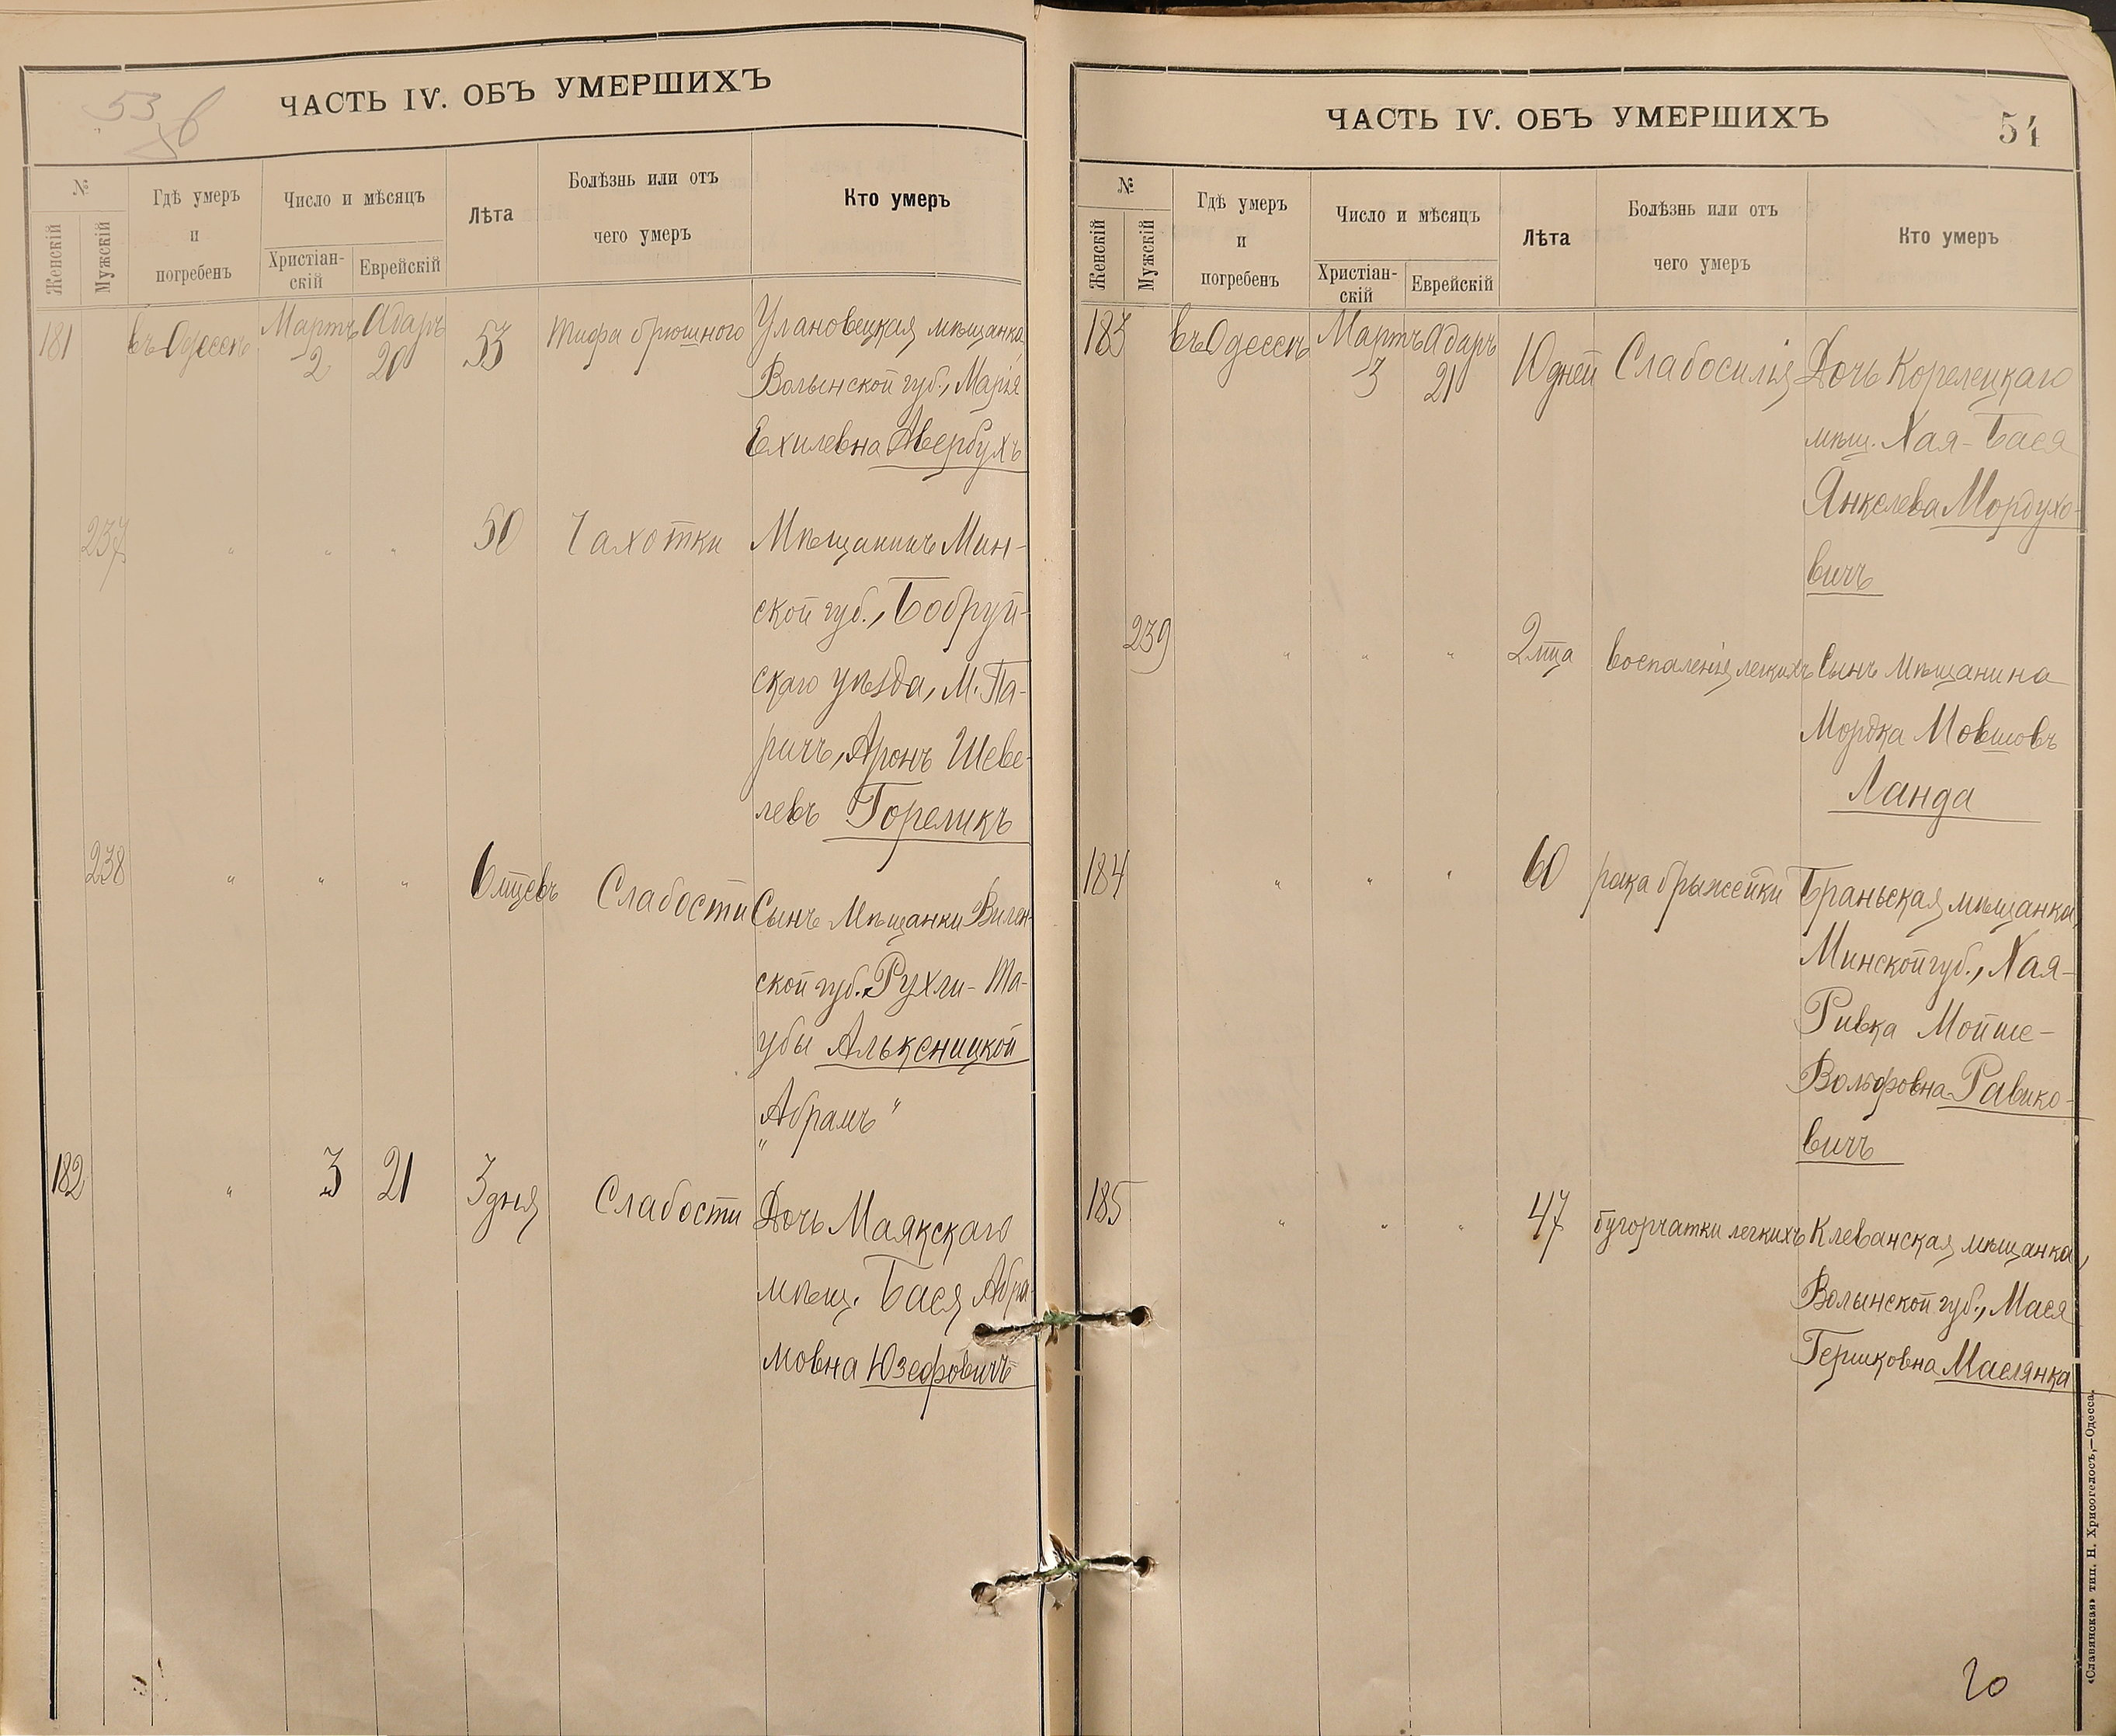 53
ЧАСТЬ IV. ОБЪ УМЕРШИХЪ
№
Женскій
Мужскій
Гдѣ умеръ
и
погребенъ
Число и мѣсяцъ
Христіан-
скій
Еврейскій
Лѣта
Болѣзнь или отъ
чего умеръ
Кто умеръ
181 въ Одессѣ Мартъ 2 Адаръ 20 53 Тифа брюшного Улановецкая мѣщанка,
Волынской губ., Марія
Ехилевна Авербухъ
237 " " " 50 Чахотки Мѣщанинъ Мин-
ской губ., Бобруй-
скаго уѣзда, М. Па-
ричъ, Аронъ Шеве-
левъ Гореликъ
238 " " " 6 мцевъ Слабости Сынъ Мѣщанки Вилен-
ской губ. Рухли-Та-
убы Альксницкой
"Абрамъ"
182 " 3 21 3 дня Слабости Дочь Маякскаго
мѣщ. Бася Абра-
мовна Юзефовичъ
ЧАСТЬ IV. ОБЪ УМЕРШИХЪ
54
№
Женскій
Мужскій
Гдѣ умеръ
и
погребенъ
Число и мѣсяцъ
Христіан-
скій
Еврейскій
Лѣта
Болѣзнь или отъ
чего умеръ
Кто умеръ
183 въ Одессѣ Мартъ 3 Адаръ 21 10 дней Слабосилія Дочь Корелецкаго
мѣщ. Хая-Бася
Янкелева Мордухо-
вичъ
239 " " " 2 мца воспаленія легкихъ Сынъ Мѣщанина
Мордка Мовшовъ
Ланда
184 " " " 60 рака брыжейки Браньская мѣщанка,
Минской губ., Хая-
Ривка Мойше-
Вольфовна Равико-
вичъ
185 " " " 47 бугорчатки легкихъ Клеванская мѣщанка,
Волынской губ., Мася
Гершковна Маслянка
«Славянская» тип. Н. Хрисогелосъ,—Одесса.
20